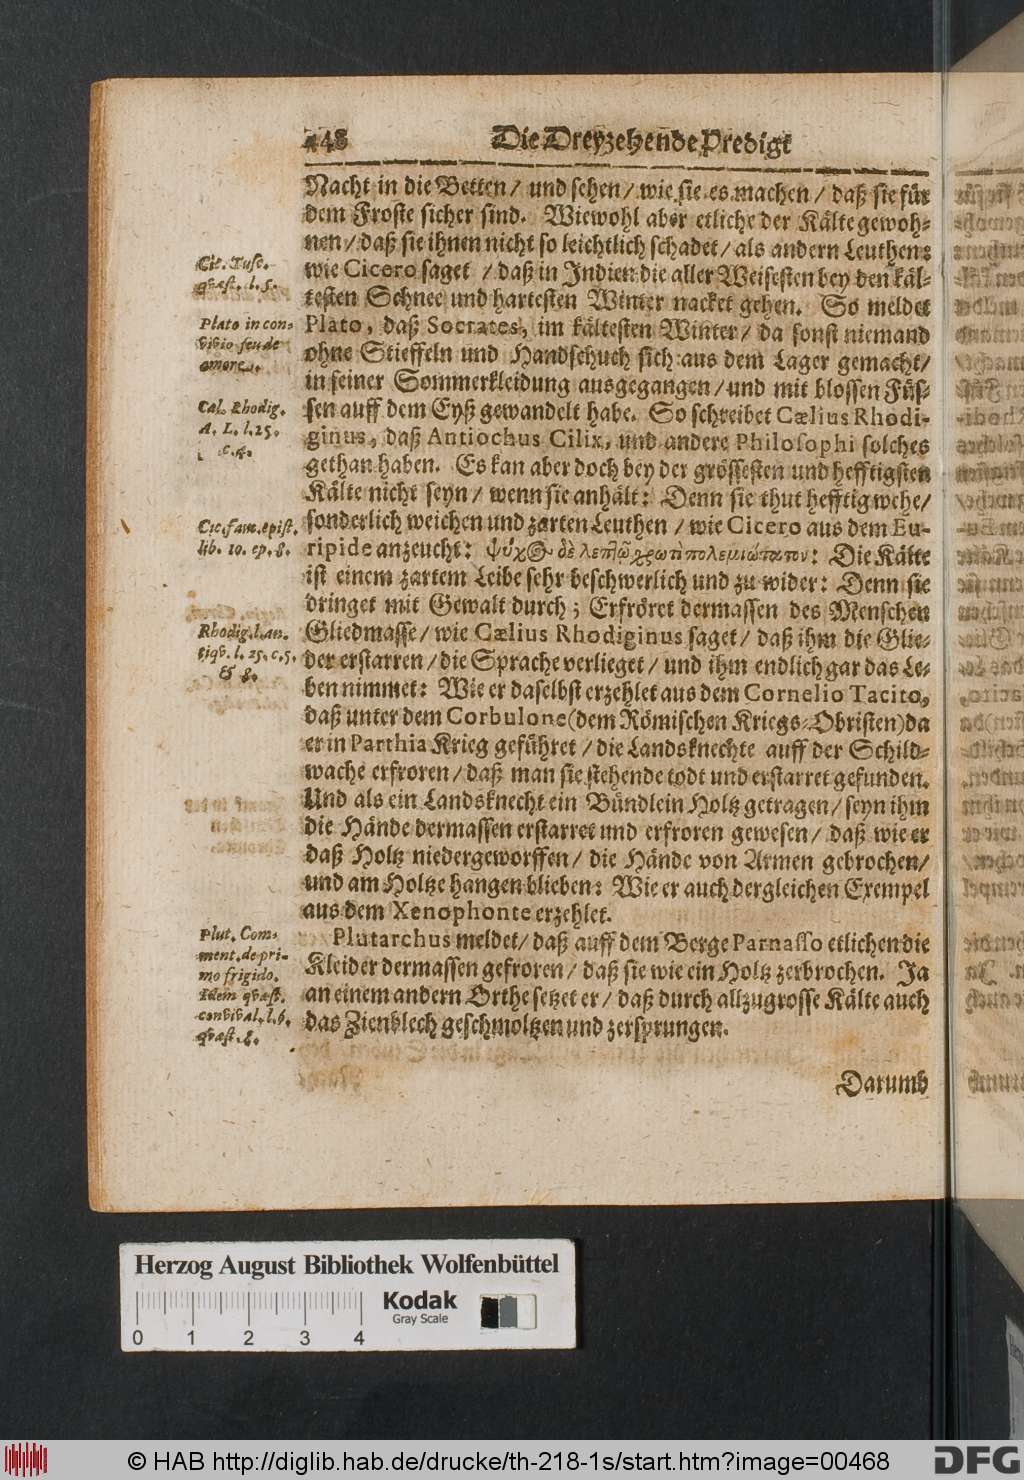 448 Die Dreyzehende Predigt
Nacht in die Betten / und sehen / wie sie es machen / daß sie für
dem Froste sicher sind. Wiewohl aber etliche der Kälte gewoh⸗
nen / daß sie ihnen nicht so leichtlich schadet / als andern Leuthen:
wie Cicero saget / daß in Indien die aller Weisesten bey den käl⸗
testen Schnee und hartesten Winter nacket gehen. So meldet
Plato, daß Socrates, im kältesten Winter / da sonst niemand
ohne Stieffeln und Handschuch sich aus dem Lager gemacht /
in seiner Sommerkleidung ausgegangen / und mit blossen Füs⸗
sen auff dem Eyß gewandelt habe. So schreibet Cælius Rhodi-
ginus, daß Antiochus Cilix, und andere Philosophi solches
gethan haben. Es kan aber doch bey der grössesten und hefftigsten
Kälte nicht seyn / wenn sie anhält: Denn sie thut hefftig wehe /
sonderlich weichen und zarten Leuthen / wie Cicero aus dem Eu-
ripide anzeucht: ψύχος δὲ λεπτῷ χρωτὶ πολεμιώτατον: Die Kälte
ist einem zartem Leibe sehr beschwerlich und zu wider: Denn sie
dringet mit Gewalt durch; Erfröret dermassen des Menschen
Gliedmasse / wie Cælius Rhodiginus saget / daß ihm die Glie⸗
der erstarren / die Sprache verlieget / und ihm endlich gar das Le⸗
ben nimmet: Wie er daselbst erzehlet aus dem Cornelio Tacito,
daß unter dem Corbulone (dem Römischen Kriegs⸗Obristen) da
er in Parthia Krieg geführet / die Landsknechte auff der Schild⸗
wache erfroren / daß man sie stehende todt und erstarret gefunden.
Und als ein Landsknecht ein Bündlein Holtz getragen / seyn ihm
die Hände dermassen erstarret und erfroren gewesen / daß wie er
daß Holtz niedergeworffen / die Hände von Armen gebrochen /
und am Holtze hangen blieben: Wie er auch dergleichen Exempel
aus dem Xenophonte erzehlet.
Plutarchus meldet / daß auff dem Berge Parnasso etlichen die
Kleider dermassen gefroren / daß sie wie ein Holtz zerbrochen. Ja
an einem andern Orthe setzet er / daß durch allzugrosse Kälte auch
das Zienblech geschmoltzen und zersprungen.
Darumb
Cic. Tusc.
qvæst. l. 5.
Plato in con-
vivio seu de
amore.
Cæl. Rhodig.
A. L. l. 25.
c. 4.
Cic. fam. epist.
lib. 10. ep. 8.
Rhodig. l. an.
tiqv. l. 25. c. 5.
& 8.
Plut. Com-
ment. de pri-
mo frigido.
Idem qvæst.
convival. l. 6.
qvæst. 8.
Herzog August Bibliothek Wolfenbüttel
Kodak
Gray Scale
0 1 2 3 4
© HAB http://diglib.hab.de/drucke/th-218-1s/start.htm?image=00468
DFG